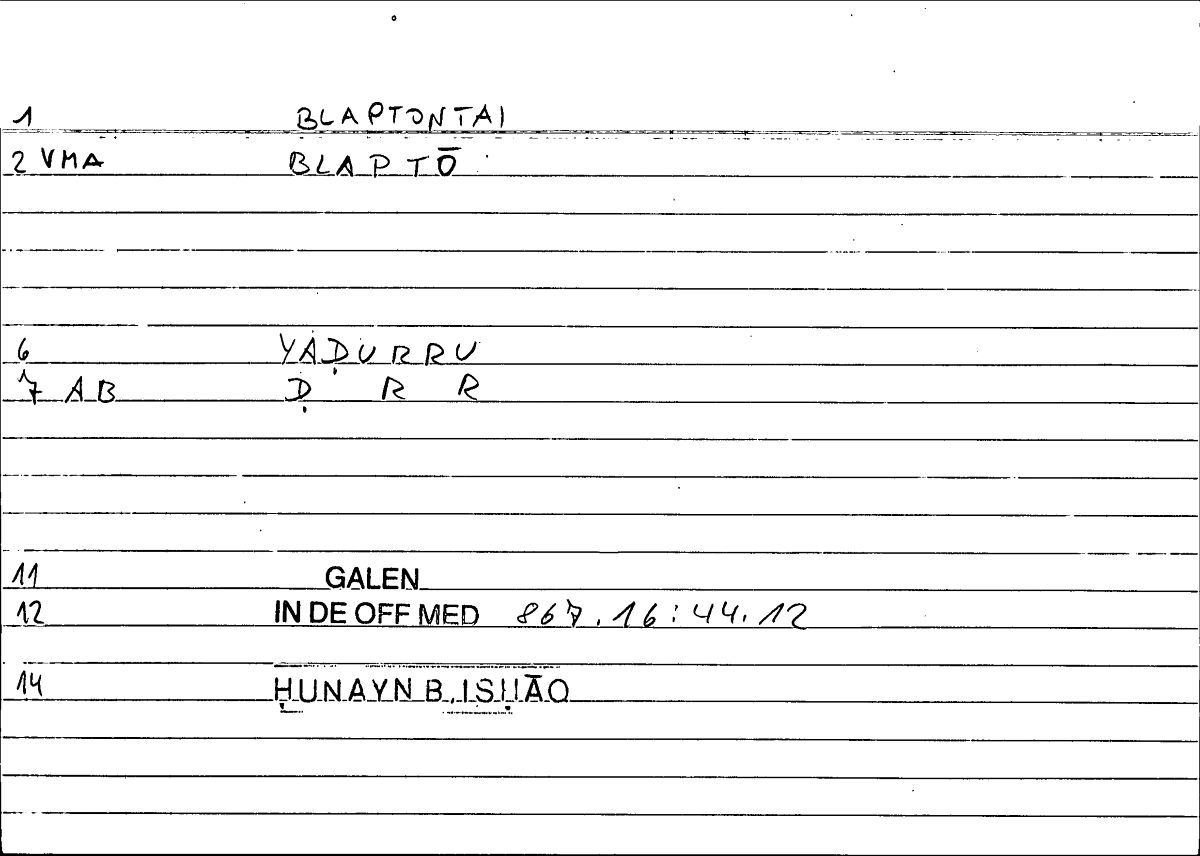 1 BLAPTONTAI
2 VMA BLAPTŌ
6 YAḌURRU
7 AB Ḍ R R
11 GALEN
12 IN DE OFF MED 867.16:44.12
14 ḤUNAYN B. ISḤĀQ